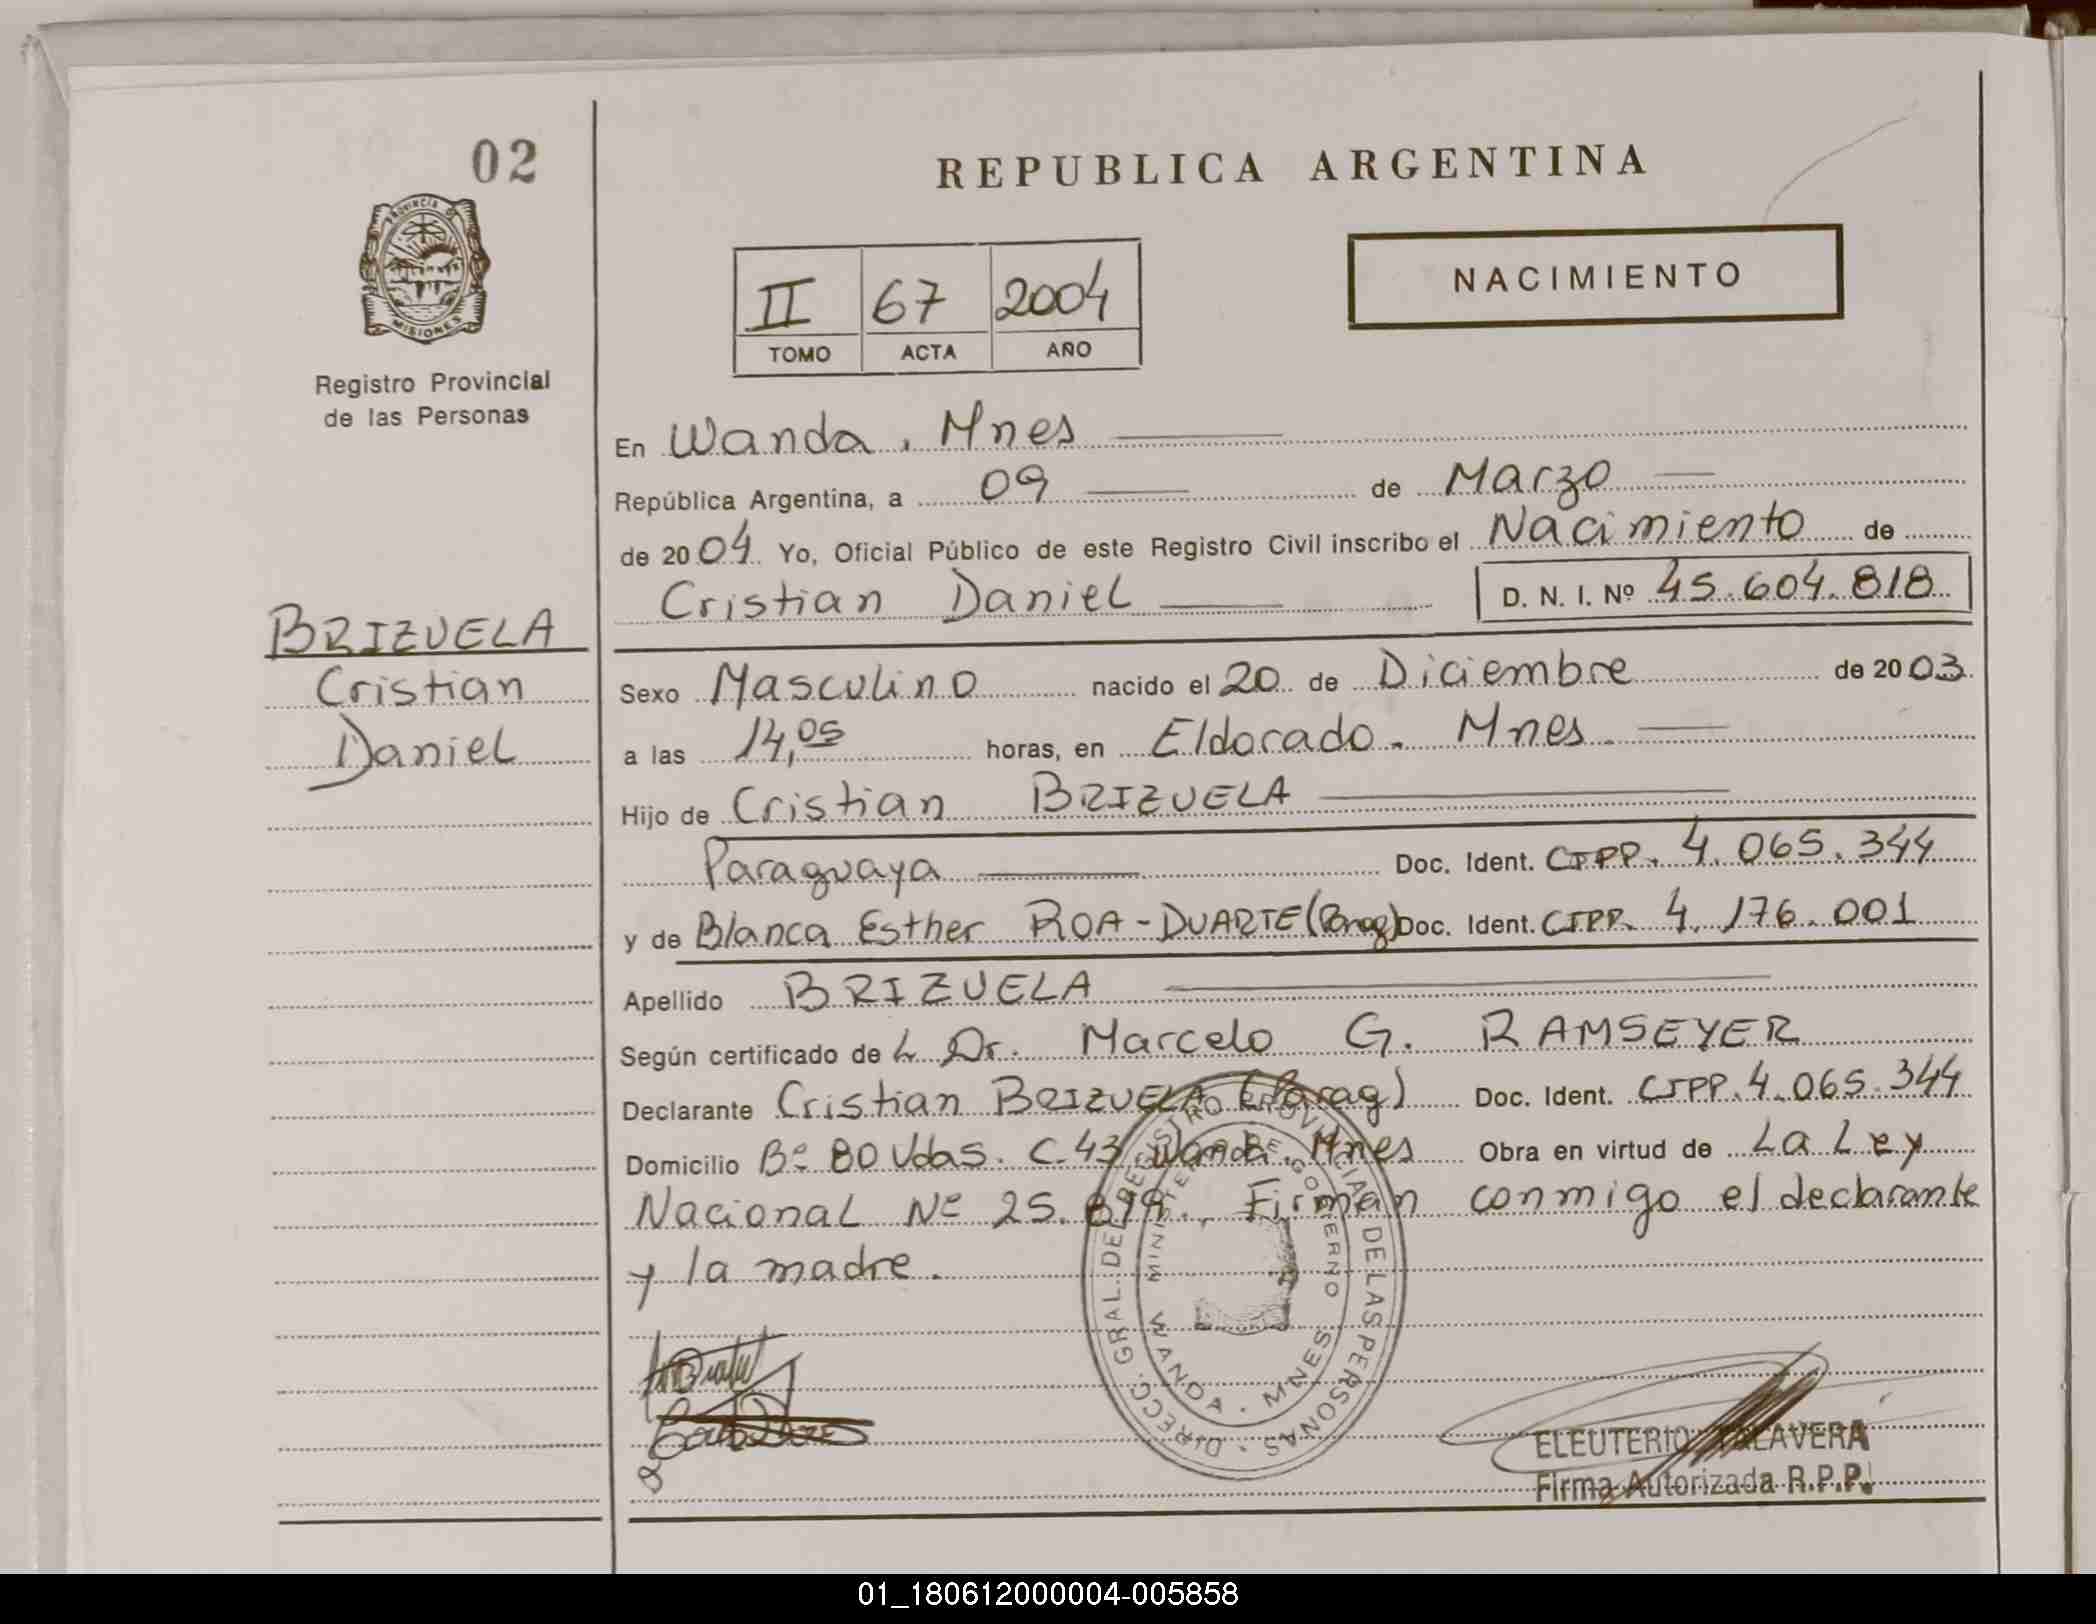 02
PROVINCIA DE
MISIONES
Registro Provincial
de las Personas
BRIZUELA
Cristian
Daniel
REPUBLICA ARGENTINA
II 67 2004
TOMO ACTA AÑO
NACIMIENTO
En Wanda, Mnes
República Argentina, a 09 de Marzo
de 2004 Yo, Oficial Público de este Registro Civil inscribo el Nacimiento de
Cristian Daniel D. N. I. Nº 45.604.818
Sexo Masculino nacido el 20 de Diciembre de 2003
a las 14,05 horas, en Eldorado. Mnes.
Hijo de Cristian BRIZUELA
Paraguaya Doc. Ident. CIPP. 4.065.344
y de Blanca Esther ROA-DUARTE (Parag) Doc. Ident. CIPP. 4.176.001
Apellido BRIZUELA
Según certificado de Dr. Marcelo G. RAMSEYER
Declarante Cristian BRIZUELA (Parag) Doc. Ident. CIPP. 4.065.344
Domicilio Bº 80 Vdas. C.43 Wanda. Mnes Obra en virtud de La Ley
Nacional Nº 25.819. Firman conmigo el declarante
y la madre.
DIRECC. GRAL. DEL REGISTRO PROVINCIAL DE LAS PERSONAS
MINISTERIO DE GOBIERNO
WANDA - MNES.
ELEUTERIO TALAVERA
Firma Autorizada R.P.P.
01_180612000004-005858